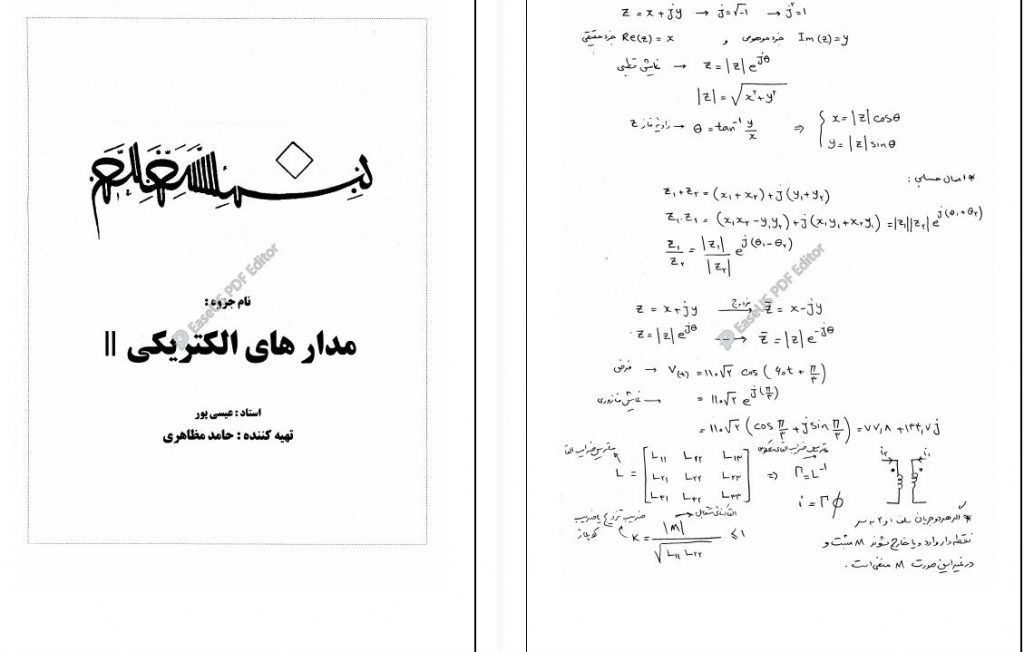 نام جزوه :
مدار های الکتریکی II
استاد : عیسی پور
تهیه کننده : حامد مظاهری
EaseUS PDF Editor
z = x + jy → j = √-1 → j² = 1
جزء حقیقی Re(z) = x و جزء موهومی Im(z) = y
نمایش قطبی → z = |z| e^{jθ}
|z| = √(x² + y²)
زاویه فاز z ← θ = tan⁻¹ y/x ⇒ { x = |z| cosθ
y = |z| sinθ
* اعمال حسابی :
z₁ + z₂ = (x₁ + x₂) + j(y₁ + y₂)
z₁.z₂ = (x₁x₂ - y₁y₂) + j(x₂y₁ + x₁y₂) = |z₁||z₂| e^{j(θ₁+θ₂)}
z₁/z₂ = |z₁|/|z₂| e^{j(θ₁-θ₂)}
EaseUS PDF Editor
z = x + jy مزدوج → z̄ = x - jy
z = |z| e^{jθ} ---→ z̄ = |z| e^{-jθ}
فرض → V(t) = ۱۱۰√۲ cos(۶۰t + π/۳)
نمایش فازوری → = ۱۱۰√۲ e^{j(π/۳)}
= ۱۱۰√۲ (cos π/۳ + j sin π/۳) = ۷۷,۸ + ۱۳۴,۷j
ماتریس ضرایب القا
L = [ L₁₁ L₁₂ L₁₃
L₂₁ L₂₂ L₂₃
L₃₁ L₃₂ L₃₃ ] ⇒ Γ = L⁻¹
i = Γφ
i₂ i₁
ضریب تزویج یا ضریب کوپلاژ
K = |M| / √(L₁₁ L₂₂) ≤ 1
اندوکتانس متقابل
* اگر هر دو جریان سلف ۱ و ۲ به سر
نقطه دار وارد و یا خارج شوند M مثبت و
در غیر این صورت M منفی است .